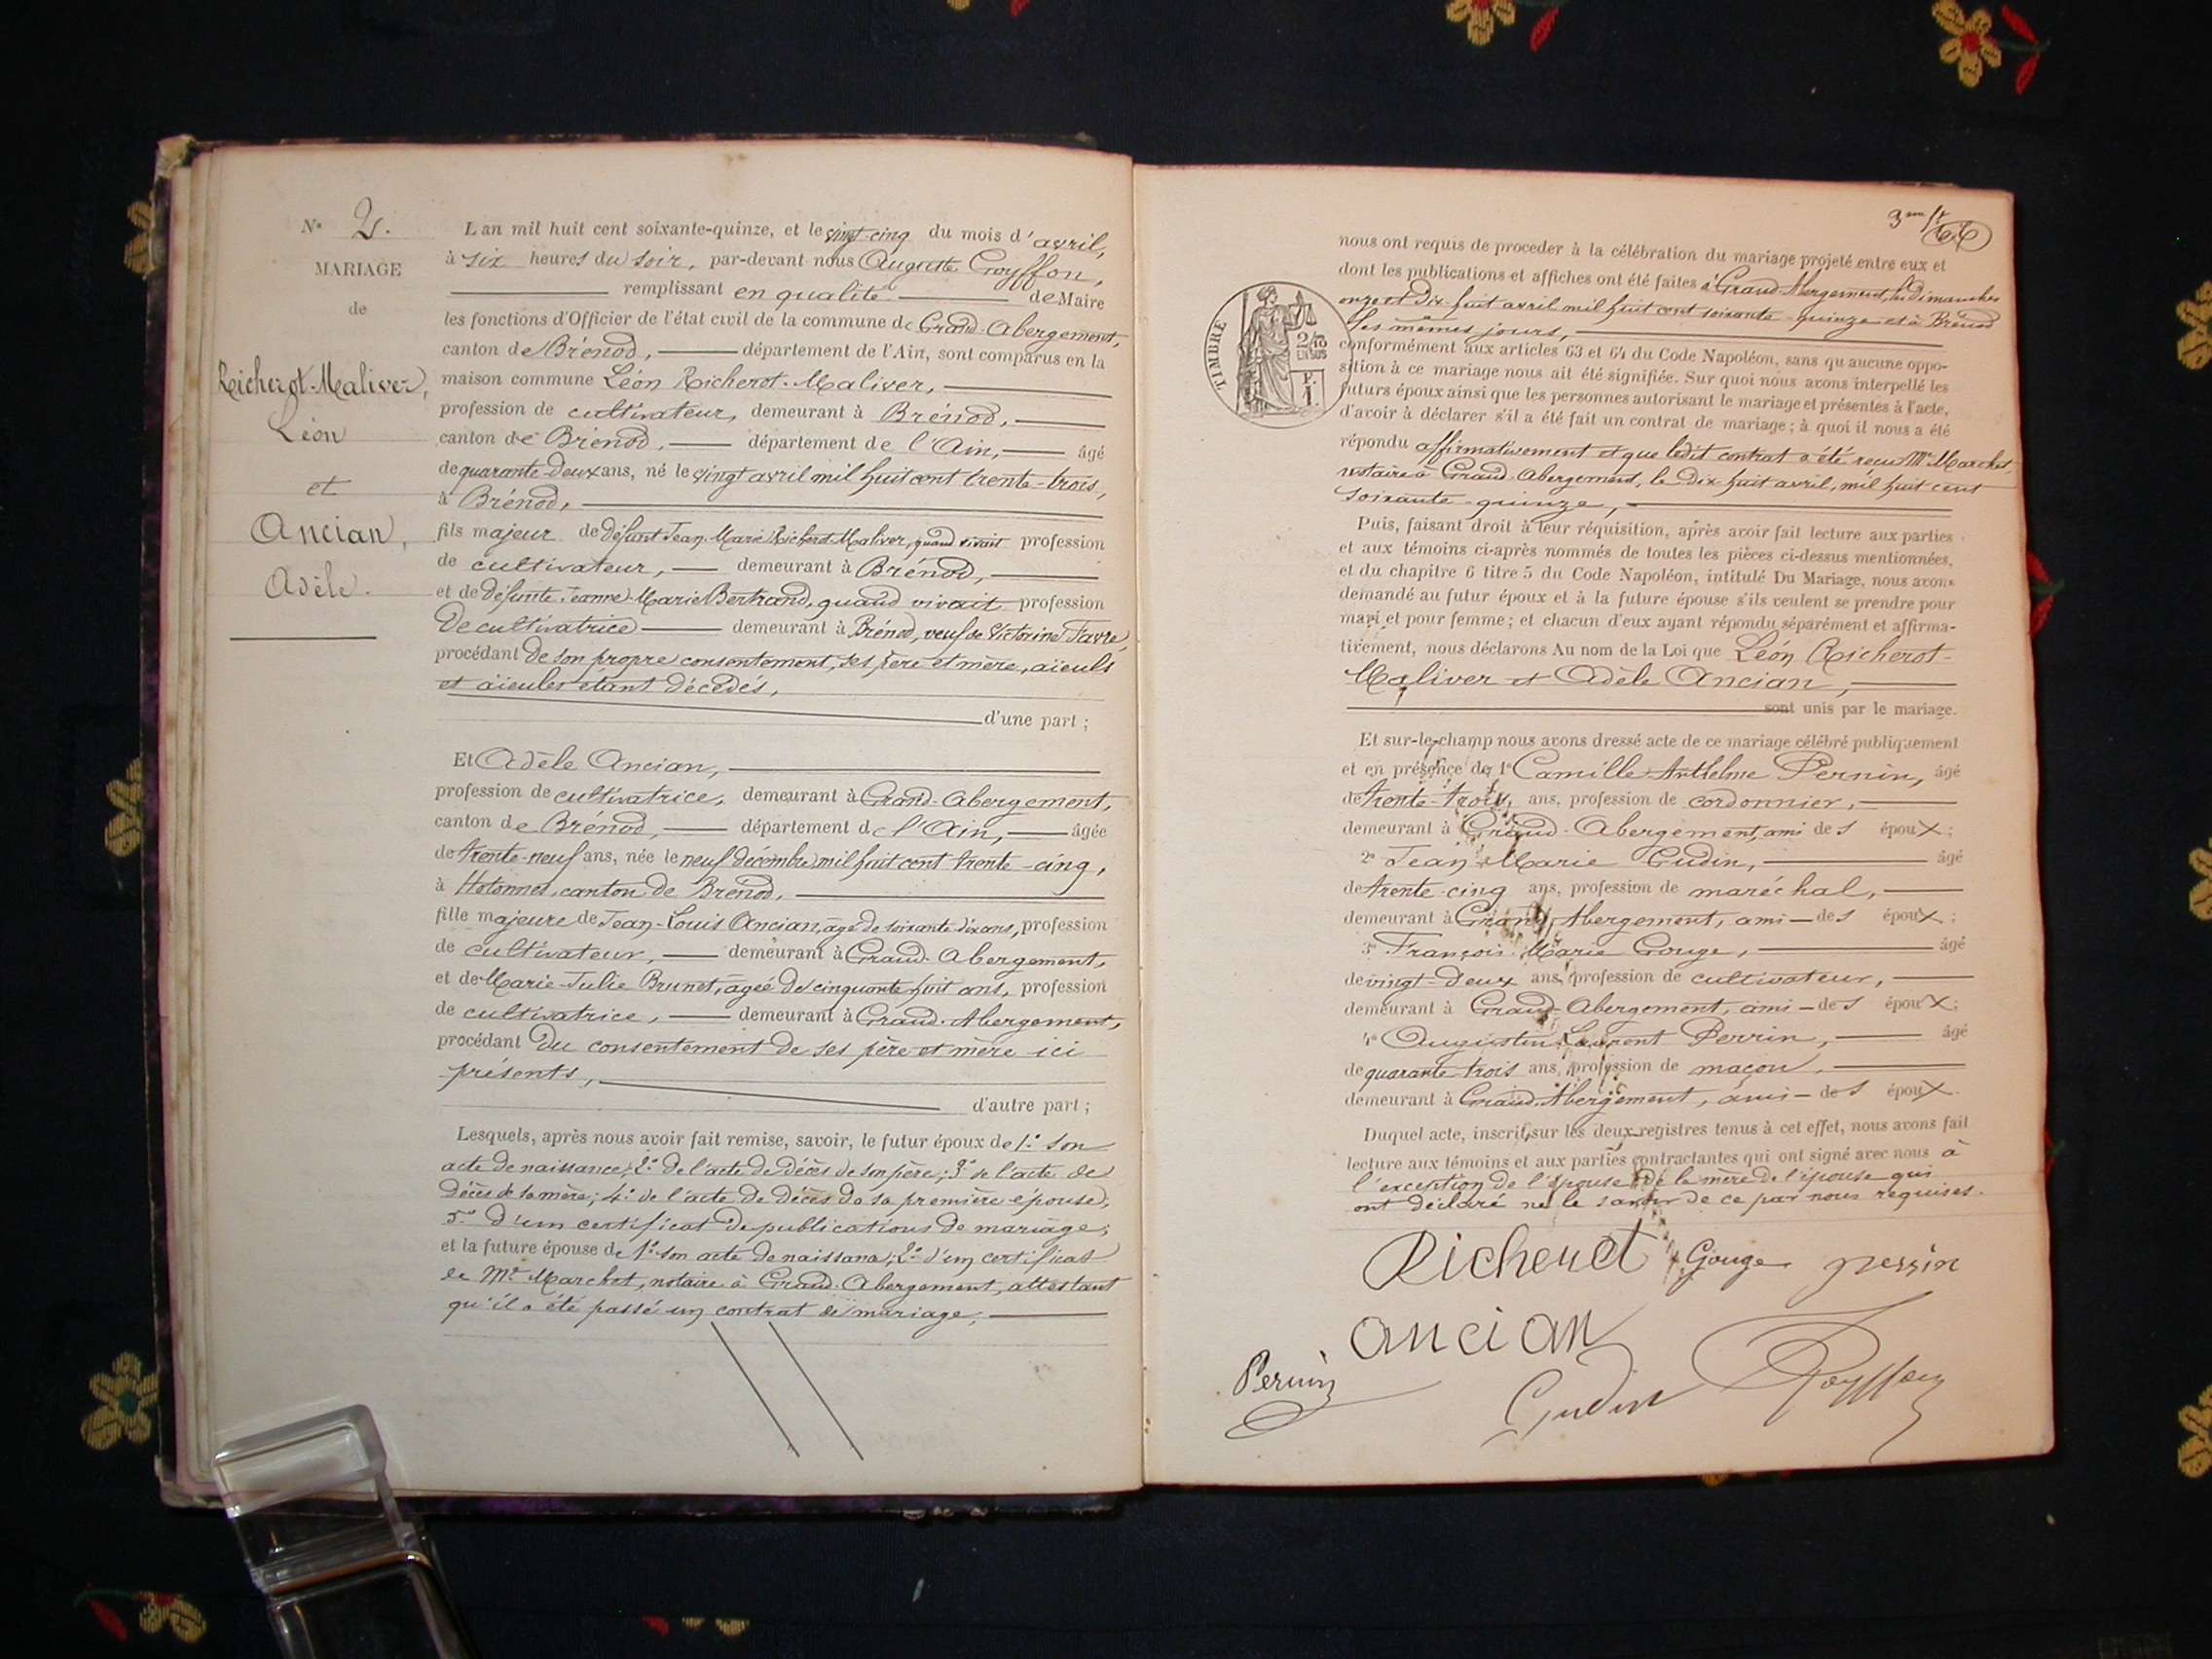 N° 2.
MARIAGE
de
Richerot-Maliver,
Léon
et
Ancian,
Adèle.
L'an mil huit cent soixante-quinze, et le vingt-cinq du mois d'avril,
à six heures du soir, par-devant nous Auguste
remplissant en qualité de Maire
les fonctions d'Officier de l'état civil de la commune de Grand-Abergement,
canton de Brénod, département de l'Ain, sont comparus en la
maison commune Léon Richerot-Maliver,
profession de cultivateur, demeurant à Brénod,
canton de Brénod, département de l'Ain, âgé
de quarante-deux ans, né le vingt avril mil huit cent trente-trois,
à Brénod,
fils majeur de défunt Jean-Marie Richerot-Maliver, quand vivait profession
de cultivateur, demeurant à Brénod,
et de défunte Jeanne-Marie Bertrand, quand vivait profession
de cultivatrice demeurant à Brénod, veuf de Victorine Favre,
procédant de son propre consentement, ses père et mère, aïeuls
et aïeules étant décédés,
d'une part ;
Et Adèle Ancian,
profession de cultivatrice, demeurant à Grand-Abergement,
canton de Brénod, département de l'Ain, âgée
de trente-neuf ans, née le neuf décembre mil huit cent trente-cinq,
à Hotonnes, canton de Brénod,
fille majeure de Jean-Louis Ancian, âgé de soixante-dix ans, profession
de cultivateur, demeurant à Grand-Abergement,
et de Marie-Julie Brunet, âgée de cinquante-huit ans, profession
de cultivatrice, demeurant à Grand-Abergement,
procédant du consentement de ses père et mère ici
présents,
d'autre part ;
Lesquels, après nous avoir fait remise, savoir, le futur époux de 1° son
acte de naissance; 2° de l'acte de décès de son père; 3° de l'acte de
décès de sa mère; 4° de l'acte de décès de sa première épouse;
5° d'un certificat de publications de mariage;
et la future épouse de 1° son acte de naissance; 2° d'un certificat
de Me Marchet, notaire à Grand-Abergement, attestant
qu'il a été passé un contrat de mariage;
3me
nous ont requis de procéder à la célébration du mariage projeté entre eux et
dont les publications et affiches ont été faites à Grand-Abergement, les dimanches
onze et dix-huit avril mil huit cent soixante-quinze et à Brénod
les mêmes jours,
TIMBRE
2/10
EN SUS
conformément aux articles 63 et 64 du Code Napoléon, sans qu'aucune oppo-
sition à ce mariage nous ait été signifiée. Sur quoi nous avons interpellé les
futurs époux ainsi que les personnes autorisant le mariage et présentes à l'acte,
d'avoir à déclarer s'il a été fait un contrat de mariage ; à quoi il nous a été
répondu affirmativement et que ledit contrat a été reçu Me Marchet
notaire à Grand-Abergement, le dix-huit avril, mil huit cent
soixante-quinze,
Puis, faisant droit à leur réquisition, après avoir fait lecture aux parties
et aux témoins ci-après nommés de toutes les pièces ci-dessus mentionnées,
et du chapitre 6 titre 5 du Code Napoléon, intitulé Du Mariage, nous avons
demandé au futur époux et à la future épouse s'ils veulent se prendre pour
mari et pour femme ; et chacun d'eux ayant répondu séparément et affirma-
tivement, nous déclarons Au nom de la Loi que Léon Richerot-
Maliver et Adèle Ancian,
sont unis par le mariage.
Et sur-le-champ nous avons dressé acte de ce mariage célébré publiquement
et en présence de 1° Camille Anthelme Pernin, âgé
de trente-trois ans, profession de cordonnier,
demeurant à Grand-Abergement, ami des époux ;
2° Jean Marie Gudin, âgé
de trente-cinq ans, profession de maréchal,
demeurant à Grand-Abergement, ami des époux ;
3° François Marie Gouge, âgé
de vingt-deux ans, profession de cultivateur,
demeurant à Grand-Abergement, ami des époux ;
4° Augustin Laurent Perrin, âgé
de quarante-trois ans, profession de maçon,
demeurant à Grand-Abergement, ami des époux.
Duquel acte, inscrit sur les deux registres tenus à cet effet, nous avons fait
lecture aux témoins et aux parties contractantes qui ont signé avec nous à
l'exception de l'épouse et de la mère de l'épouse qui
ont déclaré ne le savoir de ce par nous requises.
Richerot Gouge perrin
ancian
Pernin Gudin